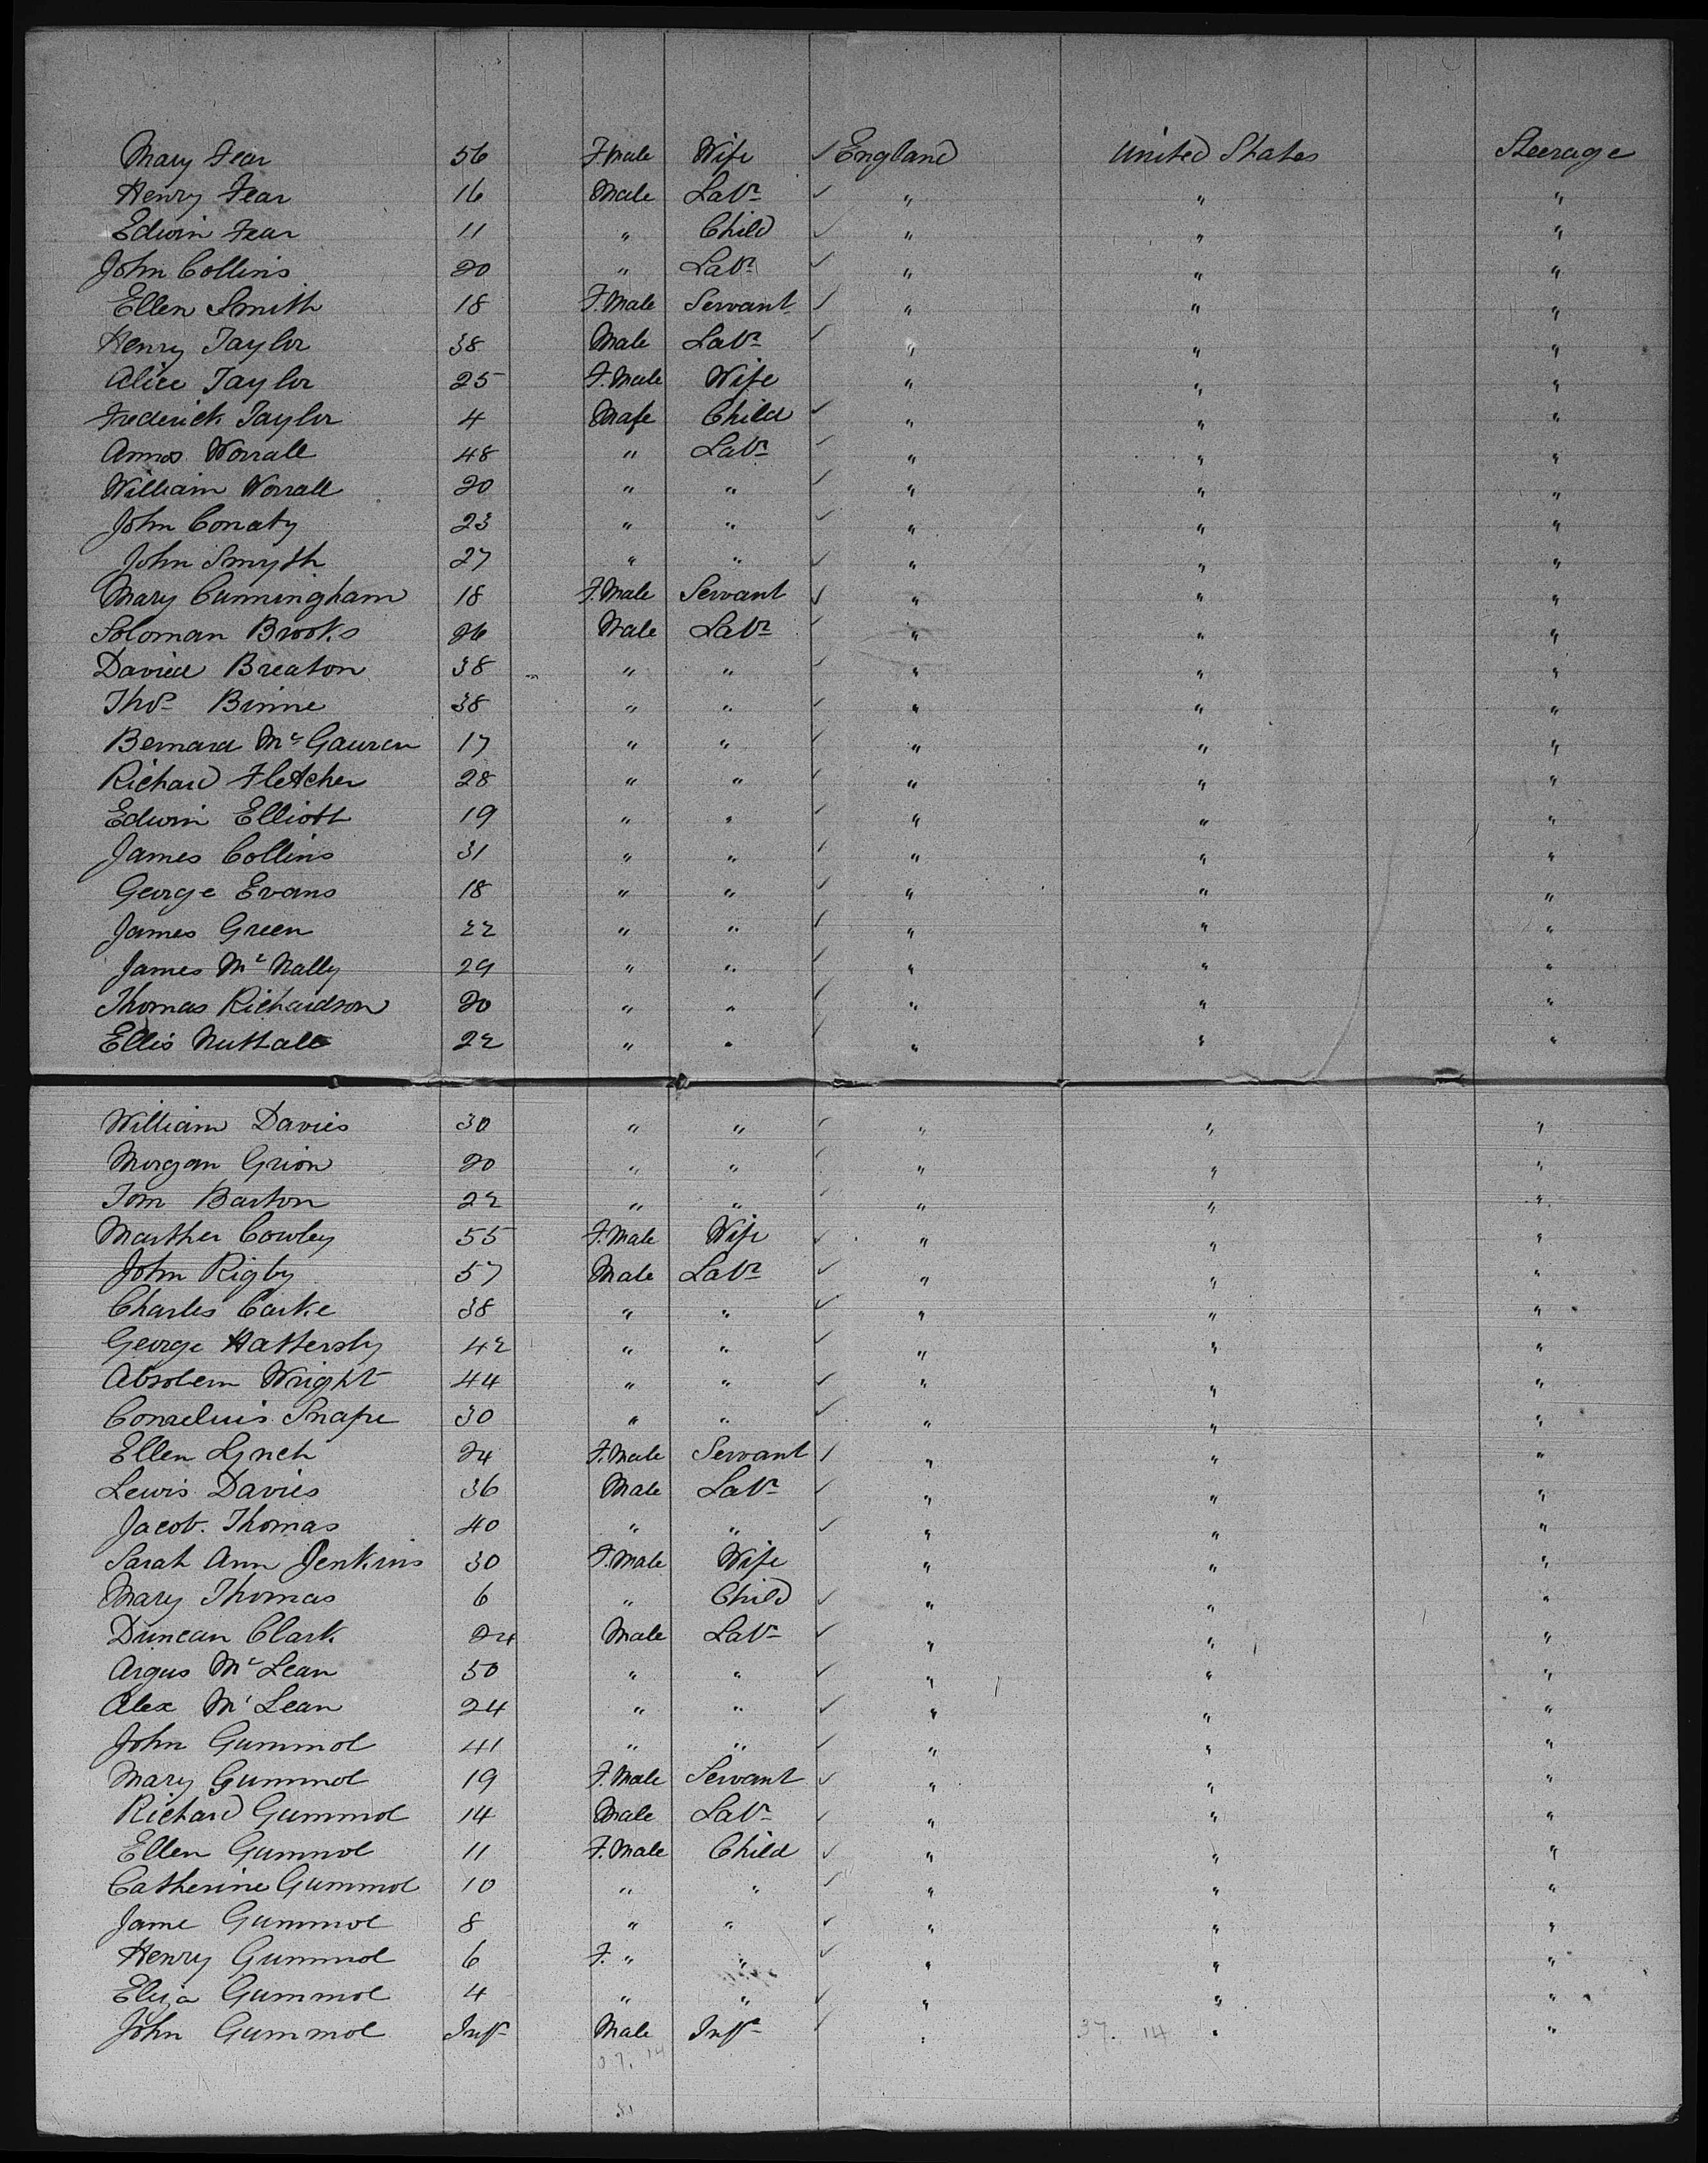 Mary Fear 56 F.Male Wife ✓ England United States Steerage
Henry Fear 16 Male Labr ✓ " " "
Edwin Fear 11 " Child ✓ " " "
John Collins 20 " Labr ✓ " " "
Ellen Smith 18 F.Male Servant ✓ " " "
Henry Taylor 38 Male Labr ✓ " " "
Alice Taylor 25 F.Male Wife " " "
Frederick Taylor 4 Male Child ✓ " " "
Amos Worrall 48 " Labr ✓ " " "
William Worrall 20 " " ✓ " " "
John Conaty 23 " " ✓ " " "
John Smyth 27 " " ✓ " " "
Mary Cunningham 18 F.Male Servant ✓ " " "
Soloman Brooks 26 Male Labr ✓ " " "
David Breaton 38 " " ✓ " " "
Thos Binne 38 " " ✓ " " "
Bernard McGauren 17 " " ✓ " " "
Richard Fletcher 28 " " ✓ " " "
Edwin Elliott 19 " " ✓ " " "
James Collins 31 " " ✓ " " "
George Evans 18 " " ✓ " " "
James Green 22 " " ✓ " " "
James McNally 29 " " ✓ " " "
Thomas Richardson 20 " " ✓ " " "
Ellis Nuttall 22 " " ✓ " " "
William Davies 30 " " ✓ " " "
Morgan Grion 20 " " ✓ " " "
Tom Barton 22 " " ✓ " " "
Marther Cowley 55 F.Male Wife ✓ " " "
John Rigby 57 Male Labr ✓ " " "
Charles Carke 38 " " ✓ " " "
George Hattersly 42 " " ✓ " " "
Absolem Wright 44 " " ✓ " " "
Cornelius Snape 30 " " ✓ " " "
Ellen Lynch 24 F.Male Servant ✓ " " "
Lewis Davies 36 Male Labr ✓ " " "
Jacob Thomas 40 " " ✓ " " "
Sarah Ann Jenkins 30 F.Male Wife " " "
Mary Thomas 6 " Child ✓ " " "
Duncan Clark 24 Male Labr ✓ " " "
Argus McLean 50 " " ✓ " " "
Alex McLean 24 " " ✓ " " "
John Gummol 41 " " ✓ " " "
Mary Gummol 19 F.Male Servant ✓ " " "
Richard Gummol 14 Male Labr ✓ " " "
Ellen Gummol 11 F.Male Child ✓ " " "
Catherine Gummol 10 " " ✓ " " "
Jame Gummol 8 " " ✓ " " "
Henry Gummol 6 F. " " ✓ " " "
Eliza Gummol 4 " " ✓ " " "
John Gummol Inft Male Inft ✓ " 37. 14 " "
37. 14